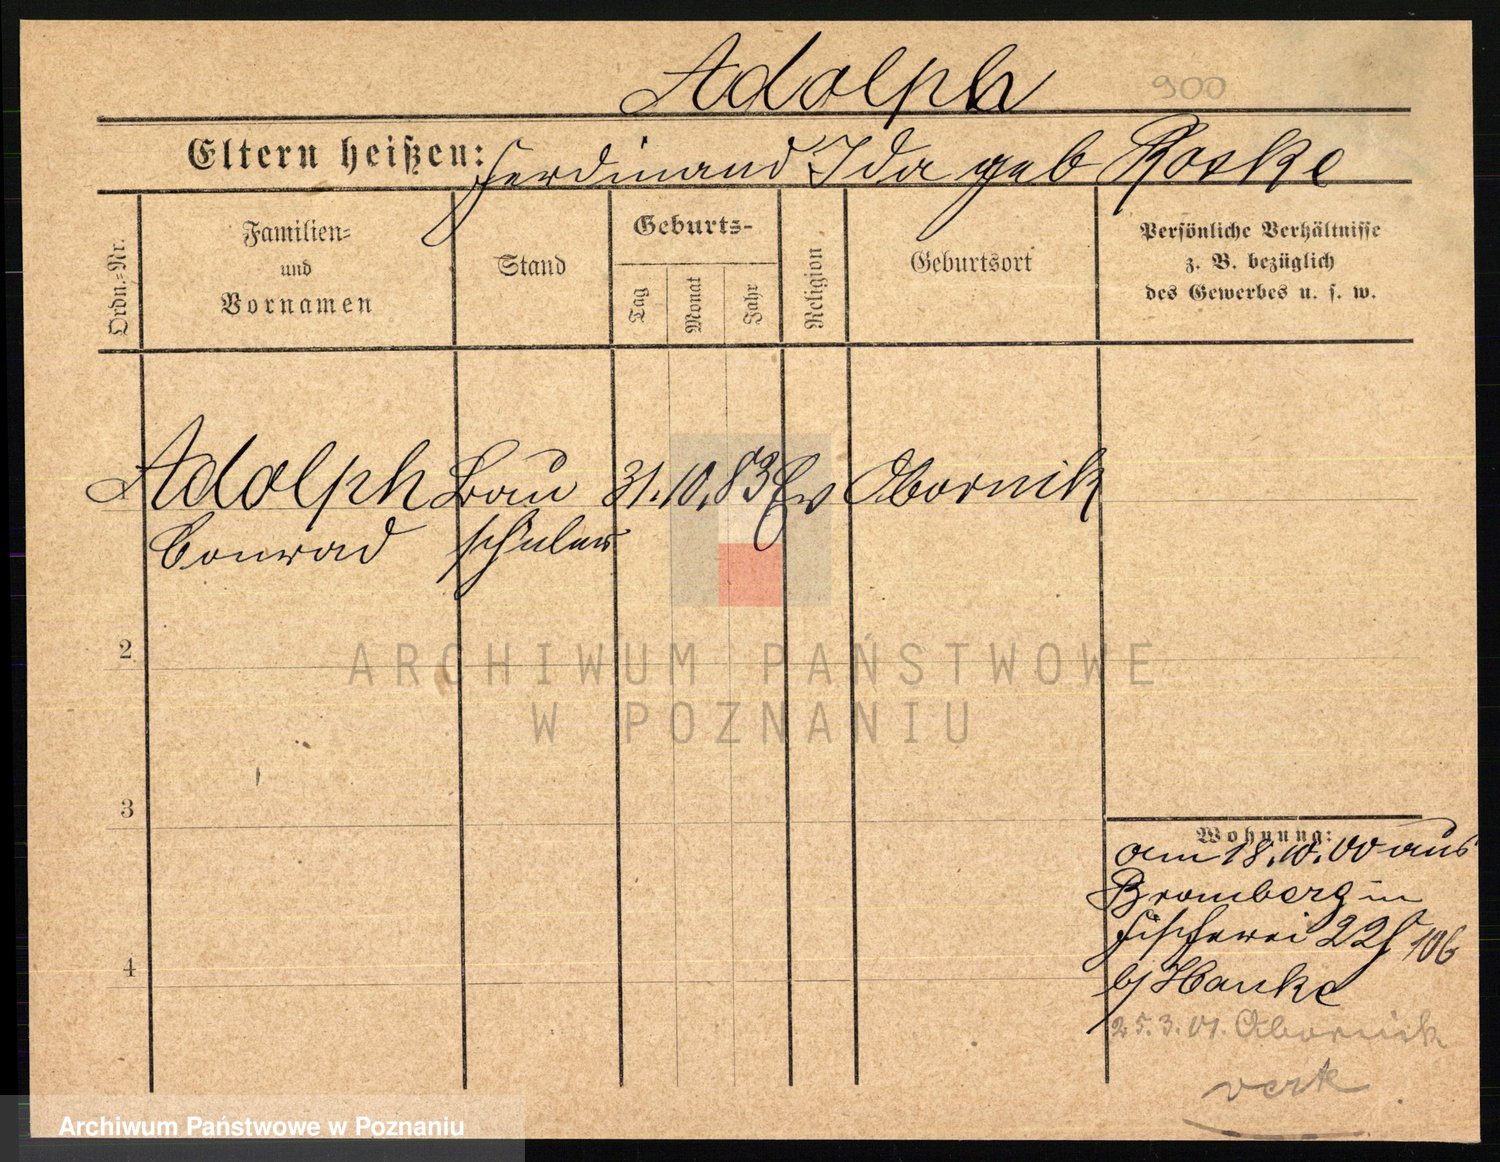 Adolph 900
Eltern heißen: Ferdinand Ida geb Roske
Ordn.=Nr.
Familien=
und
Vornamen
Stand
Geburts-
Tag
Monat
Jahr
Religion
Geburtsort
Persönliche Verhältnisse
z. B. bezüglich
des Gewerbes u. s. w.
Adolph Bau 31. 10. 83 Ev Obornik
Conrad schüler
2
ARCHIWUM PAŃSTWOWE
W POZNANIU
3
Wohnung:
am 18. 10. 00 aus
Bromberg in
Fischerei 22 106
4
b/ Hanke
25. 3. 01. Obornik
Archiwum Państwowe w Poznaniu